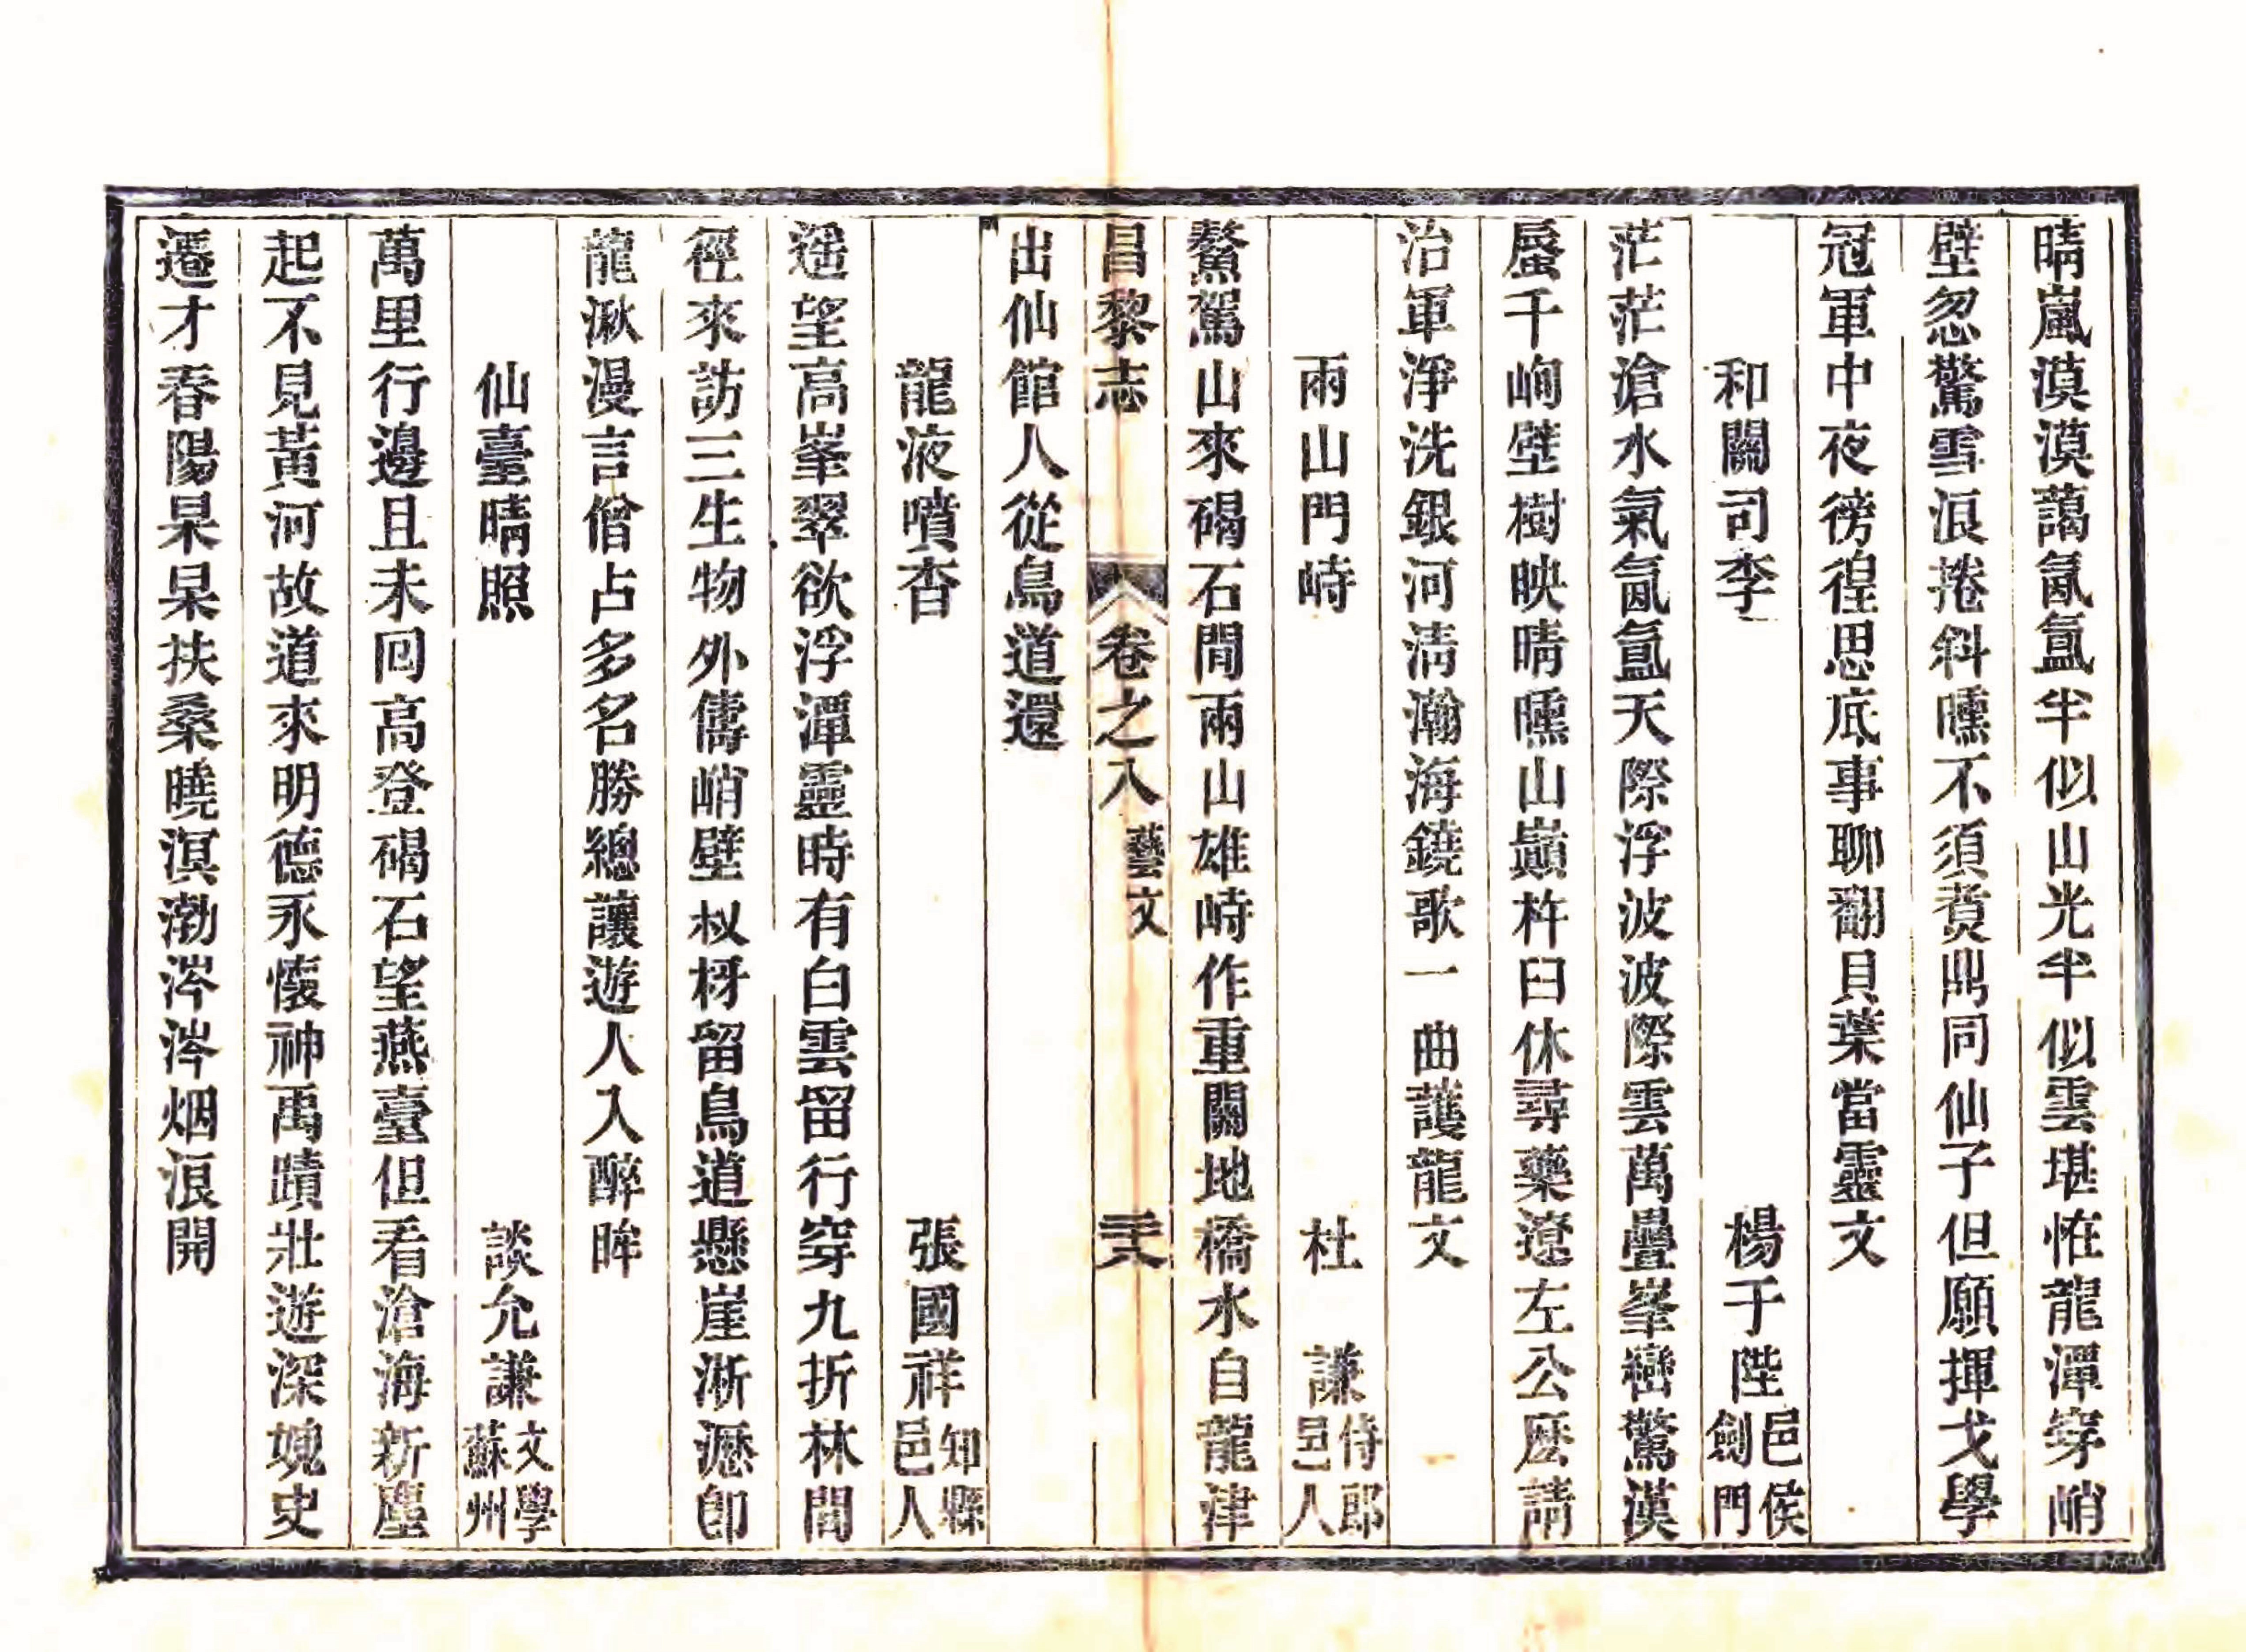 晴嵐漠漠藹氤氳半似山光半似雲堪恠龍潭穿峭
壁忽驚雪浪捲斜曛不須賷鼎同仙子但願揮戈學
冠軍中夜徬徨思底事聊翻貝葉當靈文
和關司李 楊于陛邑侯劍門
茫茫滄水氣氤氳天際浮波波際雲萬疊峯巒驚漢
蜃千峋壁樹映晴曛山巔杵臼休尋藥遼左公麽請
治軍淨洗銀河淸瀚海鐃歌一曲護龍文
兩山門峙 杜謙侍郎邑人
鰲駕山來碣石間兩山雄峙作重關地橋水自龍津
昌黎志 卷之八 藝文 三六
出仙館人從鳥道還
龍液噴杳 張國祥知縣邑人
遥望高峯翠欲浮潭靈時有白雲留行穿九折林間
徑來訪三生物外儔峭壁杈枒留鳥道懸崖淅瀝卽
龍湫漫言僧占多名勝總讓遊人入醉眸
仙臺晴照 談允謙文學蘇州
萬里行邊且未回高登碣石望燕臺但看滄海新塵
起不見黃河故道來明德永懷神禹蹟壯遊深媿史
遷才春陽杲杲扶桑曉溟渤涔涔烟浪開